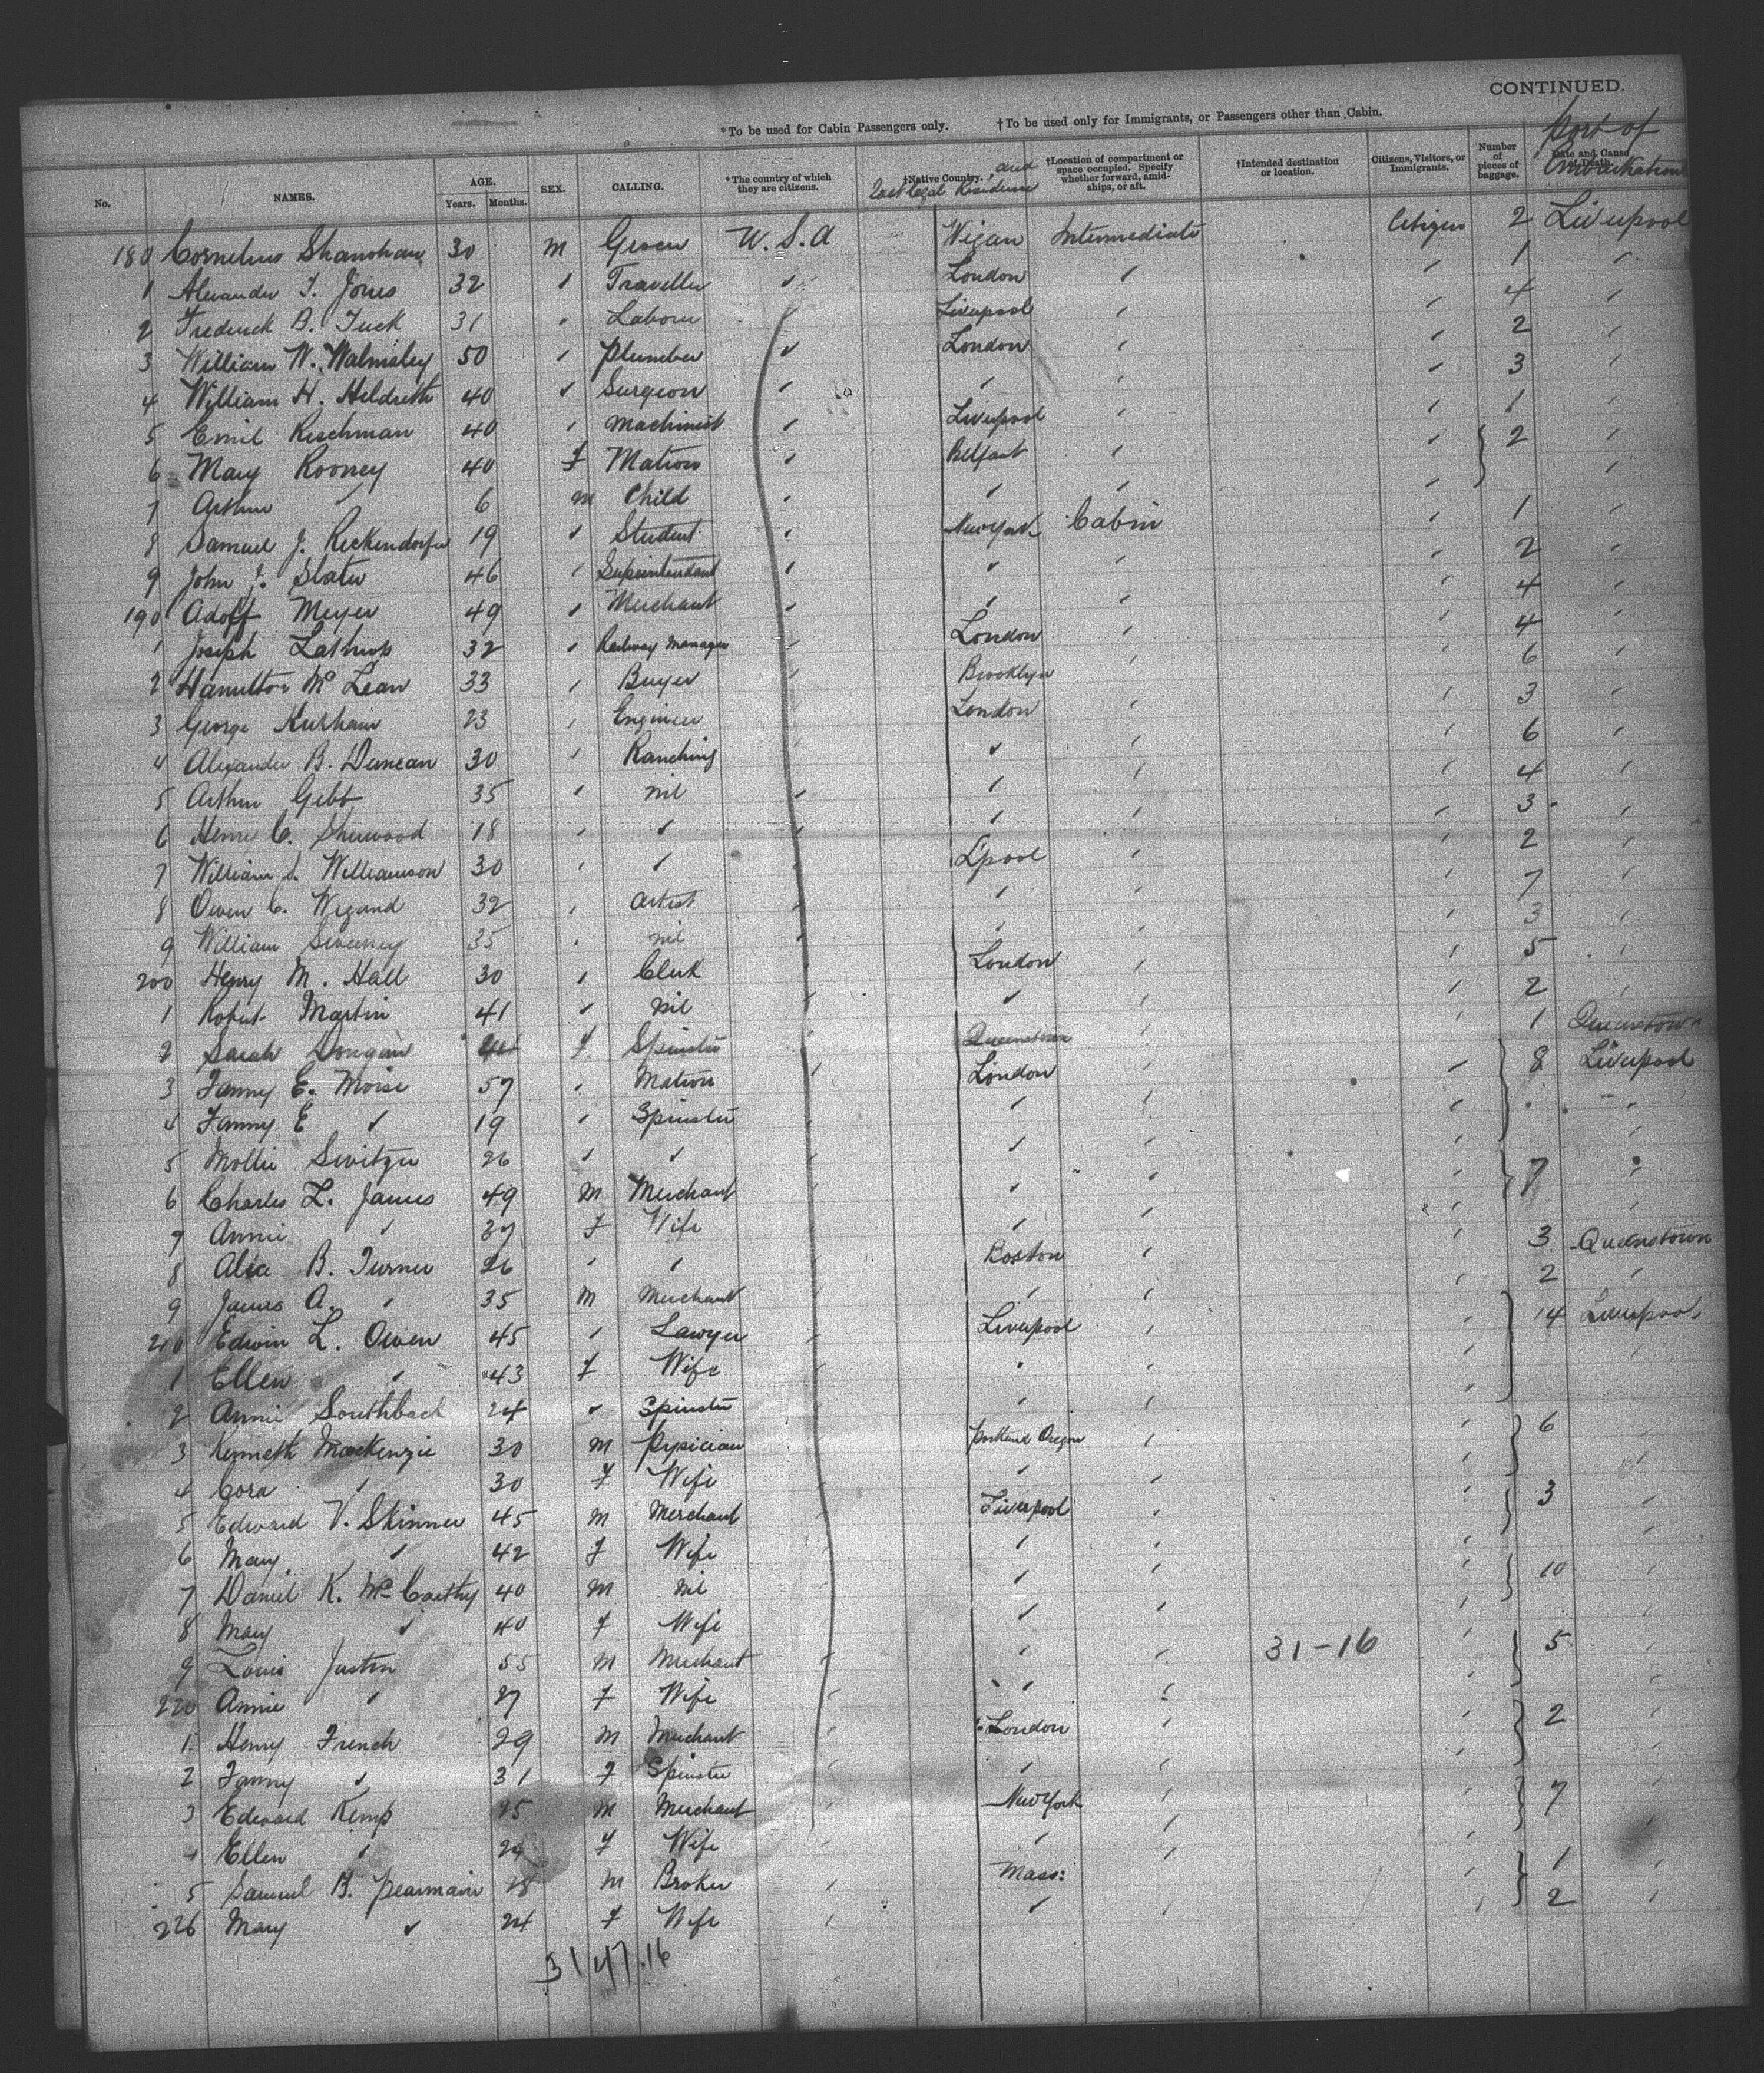 CONTINUED.
*To be used for Cabin Passengers only. †To be used only for Immigrants, or Passengers other than Cabin.
Port of Embarkation
No. NAMES. AGE. Years. Months. SEX. CALLING. *The country of which they are citizens. †Native Country. and Last legal Residence †Location of compartment or space occupied. Specify whether forward, amidships, or aft. †Intended destination or location. Citizens, Visitors, or Immigrants. Number of pieces of baggage. Date and Cause of Death.
180 Cornelius Shanahan 30 m U.S.A Wigan Intermediate Citizen 2 Liverpool
1 Alexander J. Jones 32 ✓ Traveller ✓ London ✓ ✓ 1 ✓
2 Frederick B. Tuck 31 ✓ Laborer ✓ Liverpool ✓ ✓ 4 ✓
3 William W. Walmsley 50 ✓ Plumber ✓ London ✓ ✓ 2 ✓
4 William H. Hildreth 40 ✓ Surgeon ✓ ✓ ✓ ✓ 3 ✓
5 Emil Rischman 40 ✓ Machinist ✓ Liverpool ✓ ✓ 1 ✓
6 Mary Rooney 40 F Matron ✓ Belfast ✓ ✓ 2 ✓
7 Arthur ✓ 6 m Child ✓ ✓ ✓ ✓ ✓
8 Samuel J. Reckendorfer 19 ✓ Student ✓ New York Cabin ✓ 1 ✓
9 John J. Slater 46 ✓ Superintendant ✓ ✓ ✓ ✓ 2 ✓
190 Adolf Meyer 49 ✓ Merchant ✓ ✓ ✓ ✓ 4
1 Joseph Lathrop 32 ✓ Railway Manager ✓ London ✓ ✓ 4 ✓
2 Hamilton McLean 33 ✓ Buyer ✓ Brooklyn ✓ ✓ 6 ✓
3 George 23 ✓ Engineer London ✓ ✓ 3
4 Alexander B. Duncan 30 ✓ Ranching ✓ ✓ ✓ 6 ✓
5 Arthur Gibb 35 ✓ nil ✓ ✓ ✓ ✓ 4
6 Henri C. Sherwood 18 ✓ ✓ ✓ ✓ ✓ ✓ 3 ✓
7 William S. Williamson 30 ✓ ✓ L'pool ✓ ✓ 2 ✓
8 Owen C. Wigand 32 ✓ Artist ✓ ✓ ✓ ✓ 7 ✓
9 William Sweeney 35 ✓ nil ✓ ✓ ✓ ✓ 3 ✓
200 Henry M. Hall 30 ✓ Clerk London ✓ ✓ 5 ✓
1 Robert Martin 41 ✓ nil ✓ ✓ ✓ ✓ 2 ✓
2 Sarah Dongan F Spinster ✓ Queenstown ✓ ✓ 1 Queenstown
3 Fanny E. Moise 57 ✓ Matron ✓ London ✓ ✓ 8 Liverpool
4 Fanny E ✓ 19 ✓ Spinster ✓ ✓ ✓ ✓ ✓
5 Mollie Switzer 26 ✓ ✓ ✓ ✓ ✓ ✓ ✓
6 Charles L. James 49 m Merchant ✓ ✓ ✓ ✓ 7 ✓
7 Annie ✓ 37 F Wife ✓ ✓ ✓ ✓ ✓
8 Alice B. Turner 26 ✓ ✓ ✓ Boston ✓ ✓ 3 Queenstown
9 James A. ✓ 35 m Merchant ✓ ✓ ✓ ✓ 2 ✓
210 Edwin L. Owen 45 ✓ Lawyer ✓ Liverpool ✓ ✓ 14 Liverpool
1 Ellen ✓ 43 F Wife ✓ ✓ ✓ ✓ ✓
2 Annie 24 ✓ Spinster ✓ ✓ ✓
3 Kenneth Mackenzie 30 m Pysician Portland Oregon ✓ ✓ 6
4 Cora ✓ 30 F Wife ✓ ✓ ✓ ✓
5 Edward V. Skinner 45 m Merchant Liverpool ✓ ✓ 3 ✓
6 Mary ✓ 42 F Wife ✓ ✓ ✓ ✓
7 Daniel K. McCarthy 40 m nil ✓ ✓ ✓ 10 ✓
8 Mary ✓ 40 F Wife ✓ ✓ ✓
9 Louis Justin 55 m Merchant ✓ ✓ ✓ 31-16 ✓ 5 ✓
220 Annie ✓ 27 F Wife ✓ ✓ ✓ ✓ ✓
1 Henry French 29 m Merchant ✓ London ✓ ✓ 2 ✓
2 Fanny ✓ 31 F Spinster ✓ ✓ ✓ ✓
3 Edward Kemp 25 m Merchant ✓ New York ✓ ✓ 7 ✓
4 Ellen ✓ F Wife ✓ ✓ ✓
5 Samuel B. Pearmain 28 m Broker ✓ Mass: ✓ 1 ✓
226 Mary ✓ 24 F Wife ✓ ✓ ✓ ✓ 2 ✓
31 47.16